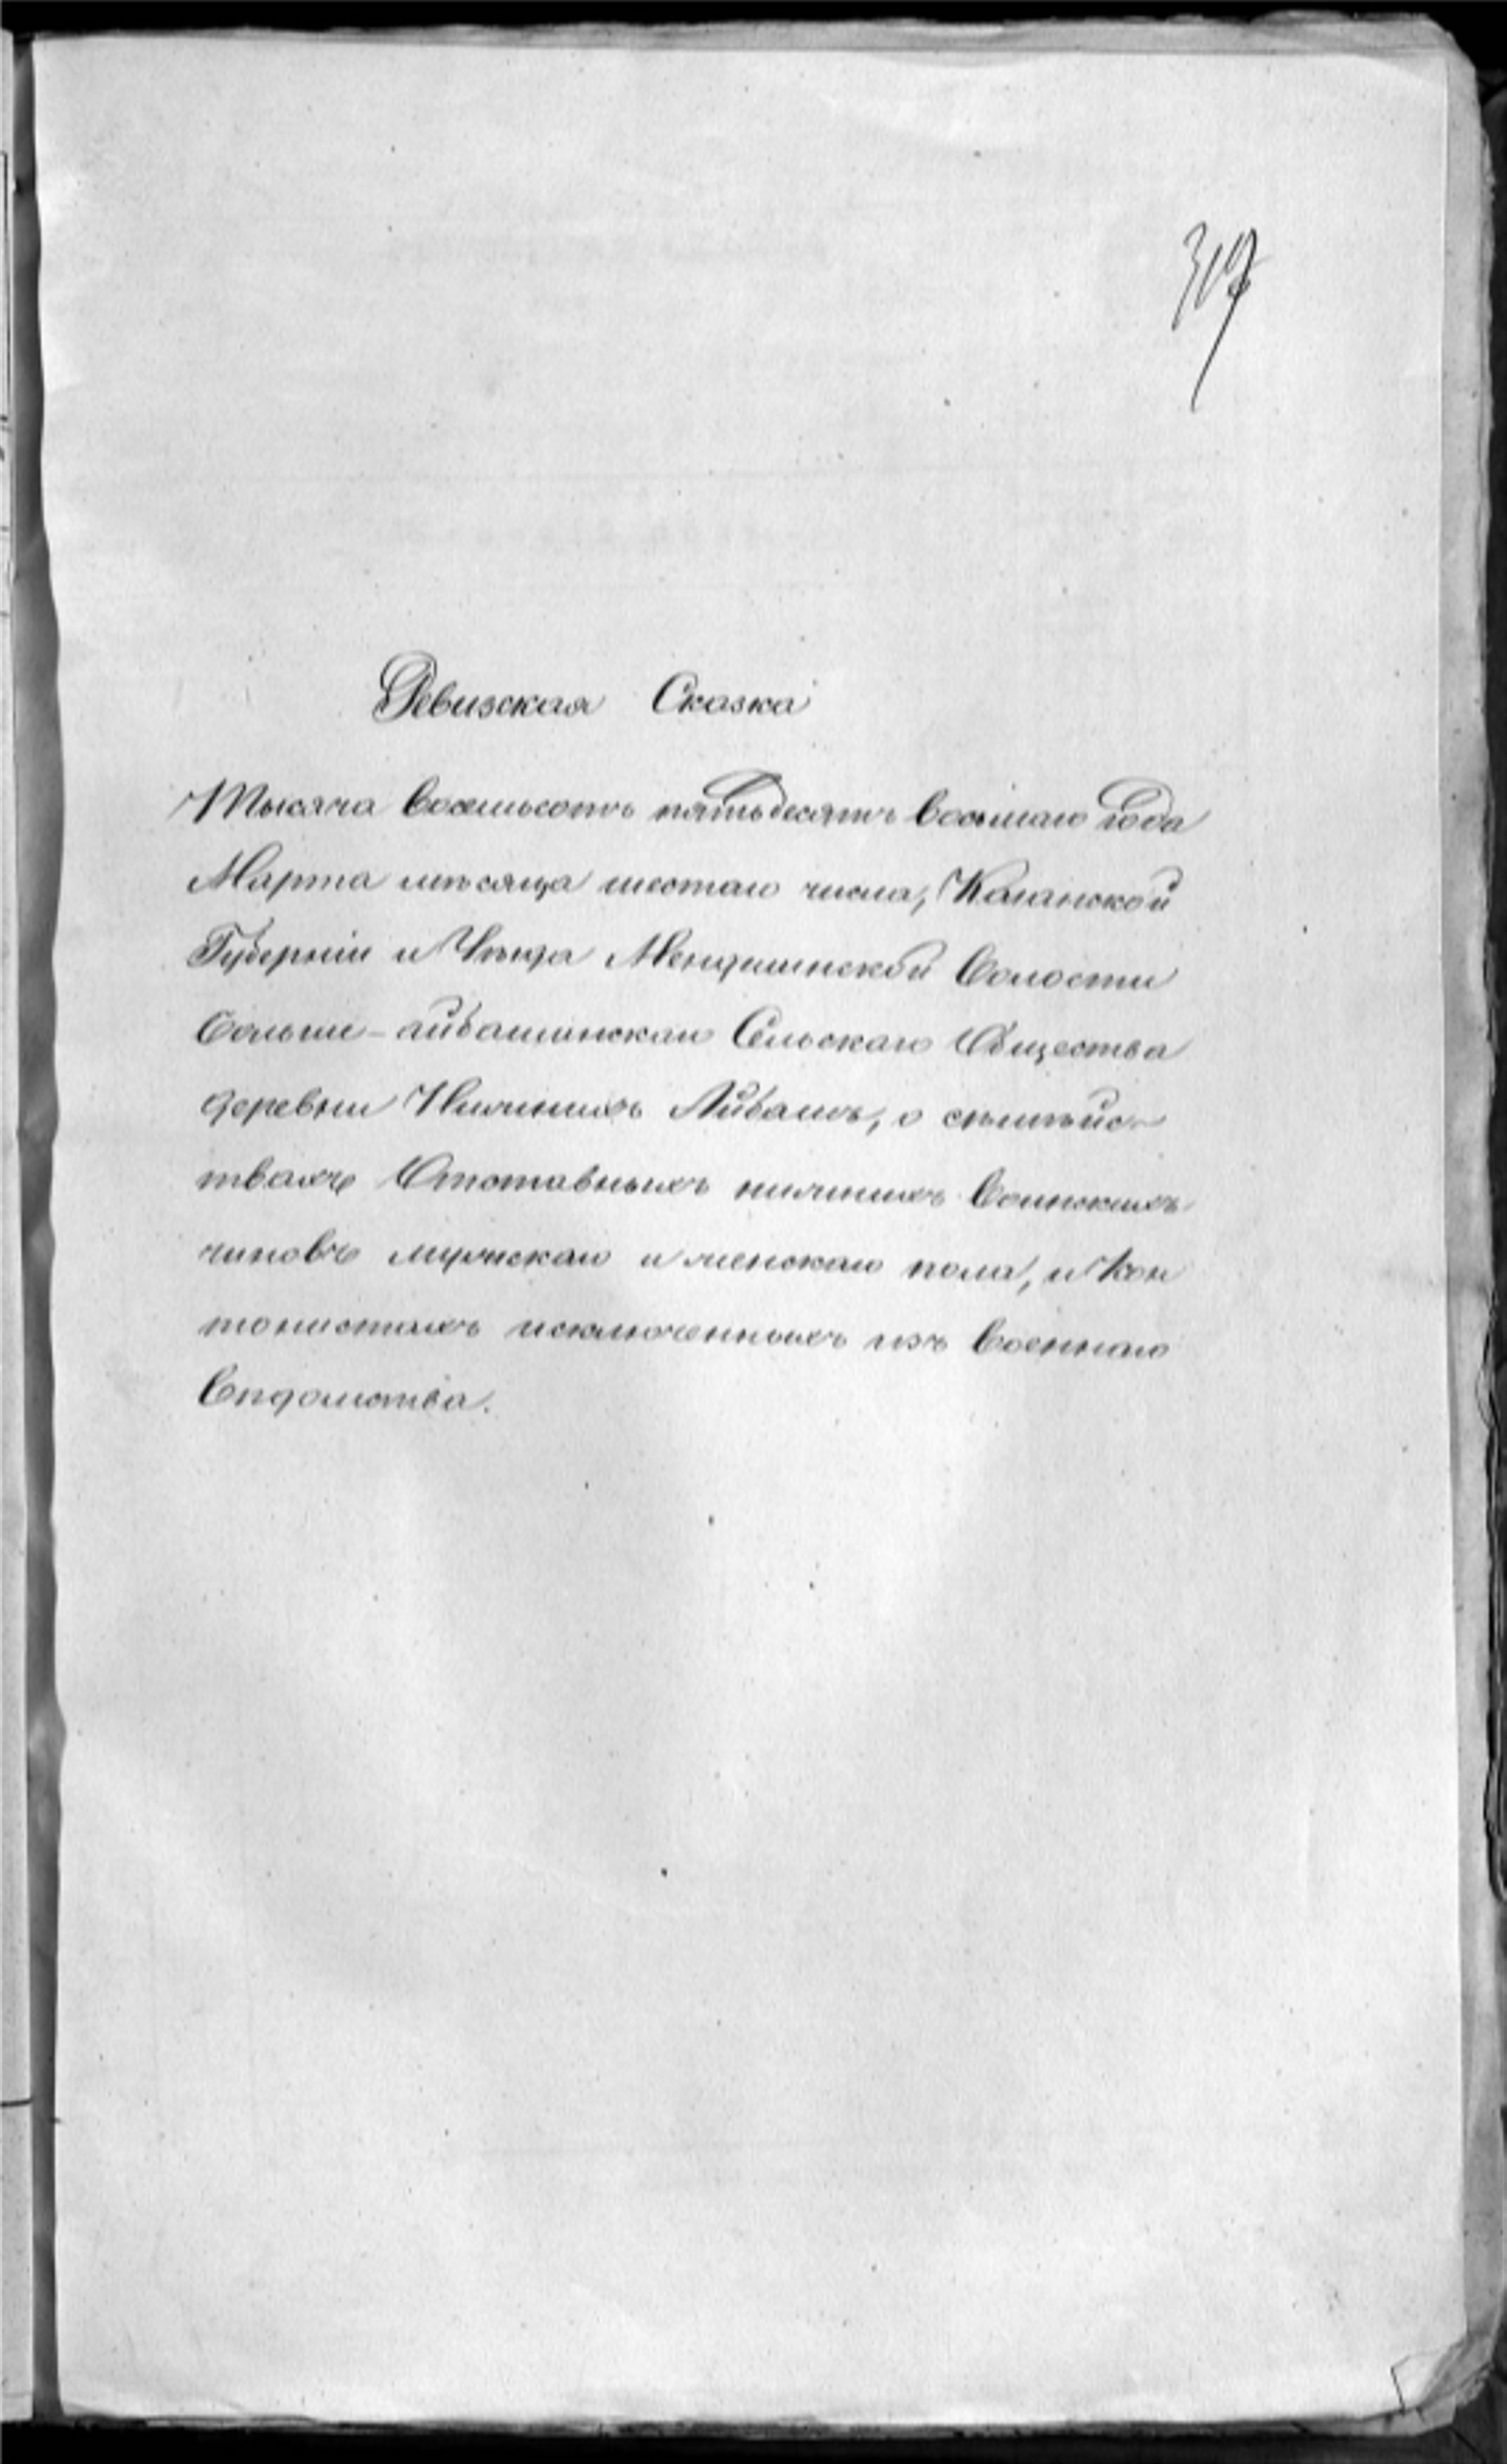 317
Ревизская Сказка
Тысяча восемьсотъ пятьдесятъ восьмаго года
Марта мѣсяца шестаго числа, Казанской
Губерніи и Уѣзда Менгушинской Волости
Больше-айбашинскаго Сельскаго Общества
деревни Нижнихъ Айбашъ, о сѣмѣйс-
твахъ Отставныхъ нижнихъ воинскихъ
чиновъ мужскаго и женскаго пола, и Кан
тонистахъ исключенныхъ изъ военнаго
Вѣдомства.